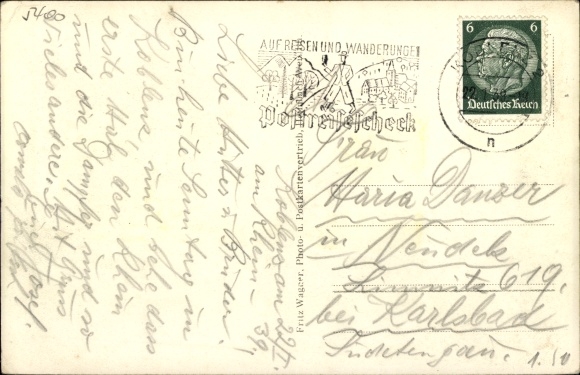 5400
Koblenz am 22.I.
am Rhein 39.
Liebe Mutter u. Brüder!
Bin heute Sonntag in
Koblenz, und sehe das
erste Mal den Rhein
und die Dampfer und so
Vieles andere. Mit Gruss
und
AUF REISEN UND WANDERUNGEN
Postreisescheck
KOBLENZ
22
n
6 6
Deutsches Reich
Frau
Maria Danzer
in Neudek
619.
bei Karlsbad
Sudetengau.
1.50
Fritz Wagner, Photo- u. Postkartenvertrieb,